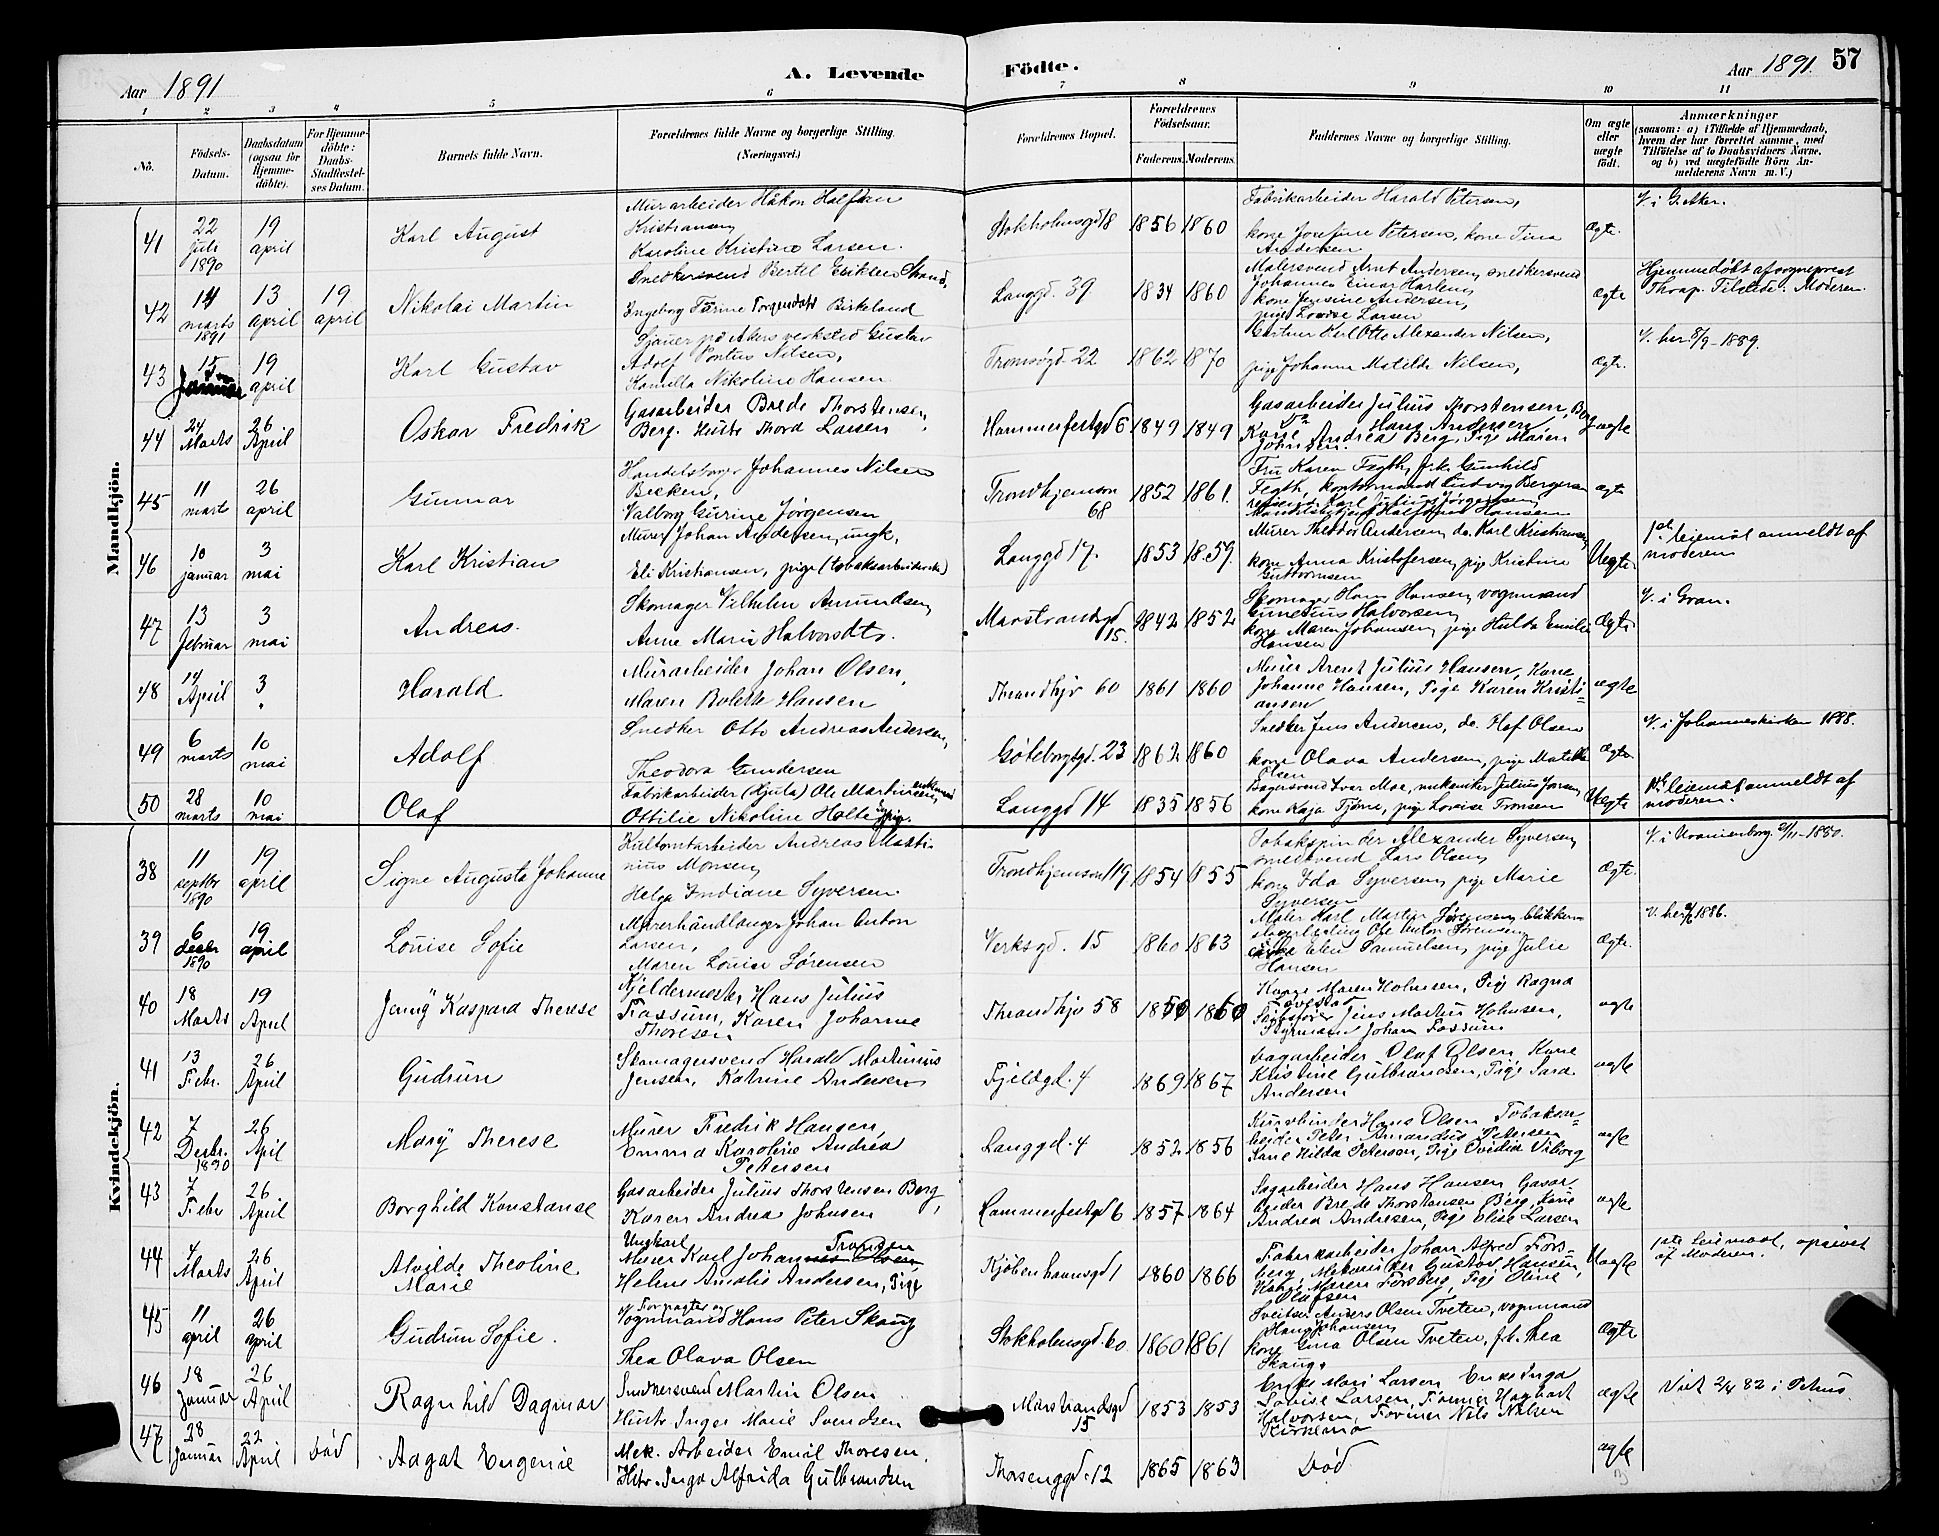 Aar 1891
A. Levende
Födte.
Aar 1891.
57
1 2 3 4 5 6 7 8 9 10 11
No.
Födsels-Datum.
Daabsdatum (ogsaa for Hjemme-döbte).
For Hjemme-döbte: Daabs-Stadfæstel-ses Datum.
Barnets fulde Navn.
Forældrenes fulde Navne og borgerlige Stilling.
(Næringsvei.)
Forældrenes Bopæl.
Forældrenes Födselsaar.
Faderens. Moderens.
Faddernes Navne og borgerlig Stilling.
Om ægte eller uægte födt.
Anmærkninger
(saasom: a) i Tilfælde af Hjemmedaab, hvem der har forrettet samme, med Tilföielse af to Daabsvidners Navne, og b) ved uægtefödte Börn Anmelderens Navn m. V.)
Mandkjön.
41 22 Juli 1890 19 april Karl August Murarbeider Håkon Halfdan Kristiansen Karoline Kristine Larsen. Stokholmsgd 18 1856 1860 Fabrikarbeider Harald Petersen, kone Josefine Petersen, kone Tina Andersen Ægte. V. i G. Aker.
42 14 marts 1891 13 april 19 april Nikolai Martin Snedkersvend Bertel Eriksen Strand, Ingeborg Birkeland Langgd. 39 1834 1860 Malersvend Arnt Andersen, snedkersvend Johannes Einar kone Jensine Andersen, pige Lovise Larsen ægte Hjemmedøbt af sogneprest Thrap. Tilstede: Moderen.
43 15 Januar 19 april Karl Gustav på Akers verksted Gustav Adolf Pontus Nilsen, Kamilla Nikoline Hansen Tromsøgd 22 1862 1870 Gartner Karl Otto Alexander Nilsen, pige Johanne Matilde Nilsen, Ægte. V. her 8/9-1889.
44 24 Marts 26 April Oskar Fredrik Gasarbeider Brede Thorstensen Berg. Hustr Thora Larsen Hammerfestgd 6 1849 1849 Gasarbeider Julius Thorstensen, Berg Do Hans Andersen Kone Andrea Berg, Pige Maren Johnsen. ægte
45 11 marts 26 april Gunnar Johannes Nilsen Bekken, Valborg Gurine Jørgensen Trondhjemsv 68 1852 1861. Fru Karen Fegth, frk. Gunhild Fegth, kontormand Ludvig Bergersen Karl Julius Jørgensen, Hansen ægte
46 10 januar 3 mai Karl Kristian Murer Johan Andersen, ungk, Eli Kristiansen, pige (tobaksarbeiderske) Langgd 17. 1853 1859. Murer Theodor Andersen, do. Karl Kristiansen, kone Anna Kristofersen, pige Kristine Guttormsen Uægte. 1ste leiemål anmeldt af moderen
47 13 Februar 3 mai Andreas. Skomager Vilhelm Amundsen, Anne Marie Halvorsdtr. Marstrandsgd 15. 1842 1852 Skomager Hans Hansen, vognmand Gunerius Halvorsen, kone Maren Johansen, pige Hulda Emilie Hansen Ægte V. i Gran.
48 14 April 3 " Harald Murarbeider Johan Olsen, Maren Bolette Hansen Thrandhjv 60 1861 1860 Murer Arent Julius Hansen, Kone Johanne Hansen, Pige Karen Kristiansen ægte
49 6 marts 10 mai Adolf Snedker Otto Andreas Andersen, Theodora Gundersen Göteborgsgd. 23 1862 1860 Snedker Jens Andersen, do. Olsen kone Olava Andersen, pige Matilde Olsen Ægte. V. i Johanneskirken 1888.
50 28 marts 10 mai Olaf Fabrikarbeider (Hjula) Ole Martinsen, enkemand Ottilie Nikoline Holte, pige. Langgd 14 1835 1856 Bagersvend Ivar Moe, mekaniker Julius kone Kaja Tjøme, pige Lovise Tronsen Uægte leiemål anmeldt af moderen.
Kvindekjön.
38 11 septbr 1890 19 april Signe Augusta Johanne Andreas Martinius Monsen, Helga Indiane Syversen. Trondhjemsv 119 1854 1855 Tobakspinder Alexander Syversen, smedsvend Lars Olsen, kone Ida Syversen, pige Marie Syversen Ægte. V. i Uranienborg -1880.
39 6 decbr 1890 19 april Lovise Sofie Murerhåndlanger Johan Anton Larsen, Maren Lovise Sørensen Verksgd. 15 1860 1863 Maler Karl Martin Sørensen, Ole Anton Sørensen, Elen Samuelsen, pige Julie Hansen Ægte. V. her 1886.
40 18 Marts 19 April Jenny Kaspara Therese Kjeldermester Hans Julius Fossum, Karen Johanne Thoresen Thrandhjv 58 1850 1860 Kone Maren Holmsen, Pige Ragna Løvestad Jens Martin Holmsen, Styrmand Johan Fossum ægte
41 13 Febr. 26 April Gudrun Skomagersvend Harald Martinius Jensen, Katrine Andersen Fjeldgd. 4 1869 1867 Olaf Olsen, Kone Kristine Gulbrandsen, Pige Sara Andersen ægte
42 7 Decbr. 1890 26 April Mary Therese Murer Fredrik Hansen, Emma Karoline Andrea Petersen Langgd. 4 1852 1856 Hans Olsen Tobaksarbeider Peter Amandus Petersen Kone Hilda Petersen, Pige Ovidia Viborg ægte
43 7 Febr 26 April Borghild Konstanse Gasarbeider Julius Thorstensen Berg, Karen Andrea Johnsen Hammerfestgd 6 1857 1864 Hans Hansen Gasarbeider Brede Thorstensen Berg, Kone Andrea Andresen, Pige Elise Larsen ægte
44 7 Marts 26 April Alvilde Theoline Marie Ungkarl Murer Karl Johan Tronsen Helene Amalie Andersen, Pige Kjøbenhavnsgd 1 1860 1866 Fabrikarbeider Johan Alfred Forsberg, Mekaniker Gustav Hansen, Kone Maren Forsberg, Pige Oline Olufsen Uægte 1ste Leiemaal, opgivet af Moderen.
45 11 april 26 april Gudrun Sofie. Forpagter og Vognmand Hans Peter Skaug Thea Olava Olsen Stokholmsgd. 60 1860 1861 Sveitser Anders Olsen Tveten, vognmand Hans Johansen kone Gina Olsen Tveten, Thea Skaug. Ægte
46 18 Januar 26 April Ragnhild Dagmar Snedkersvend Martin Olsen Hustr Inger Marie Svendsen Marstrandsgd 15 1853 1853 Enke Mari Larsen, Enke Inga Lovise Larsen, Former Hagbart Halvorsen, Former Nils Nilsen ægte Viet 2/4 82 i Petrus.
47 28 Januar 22 April Død Aagot Eugenie Mek. Arbeider Emil Thoresen, Hstr. Inga Alfrida Gulbrandsen Thorsenggd. 12 1865 1863 Død ægte
3